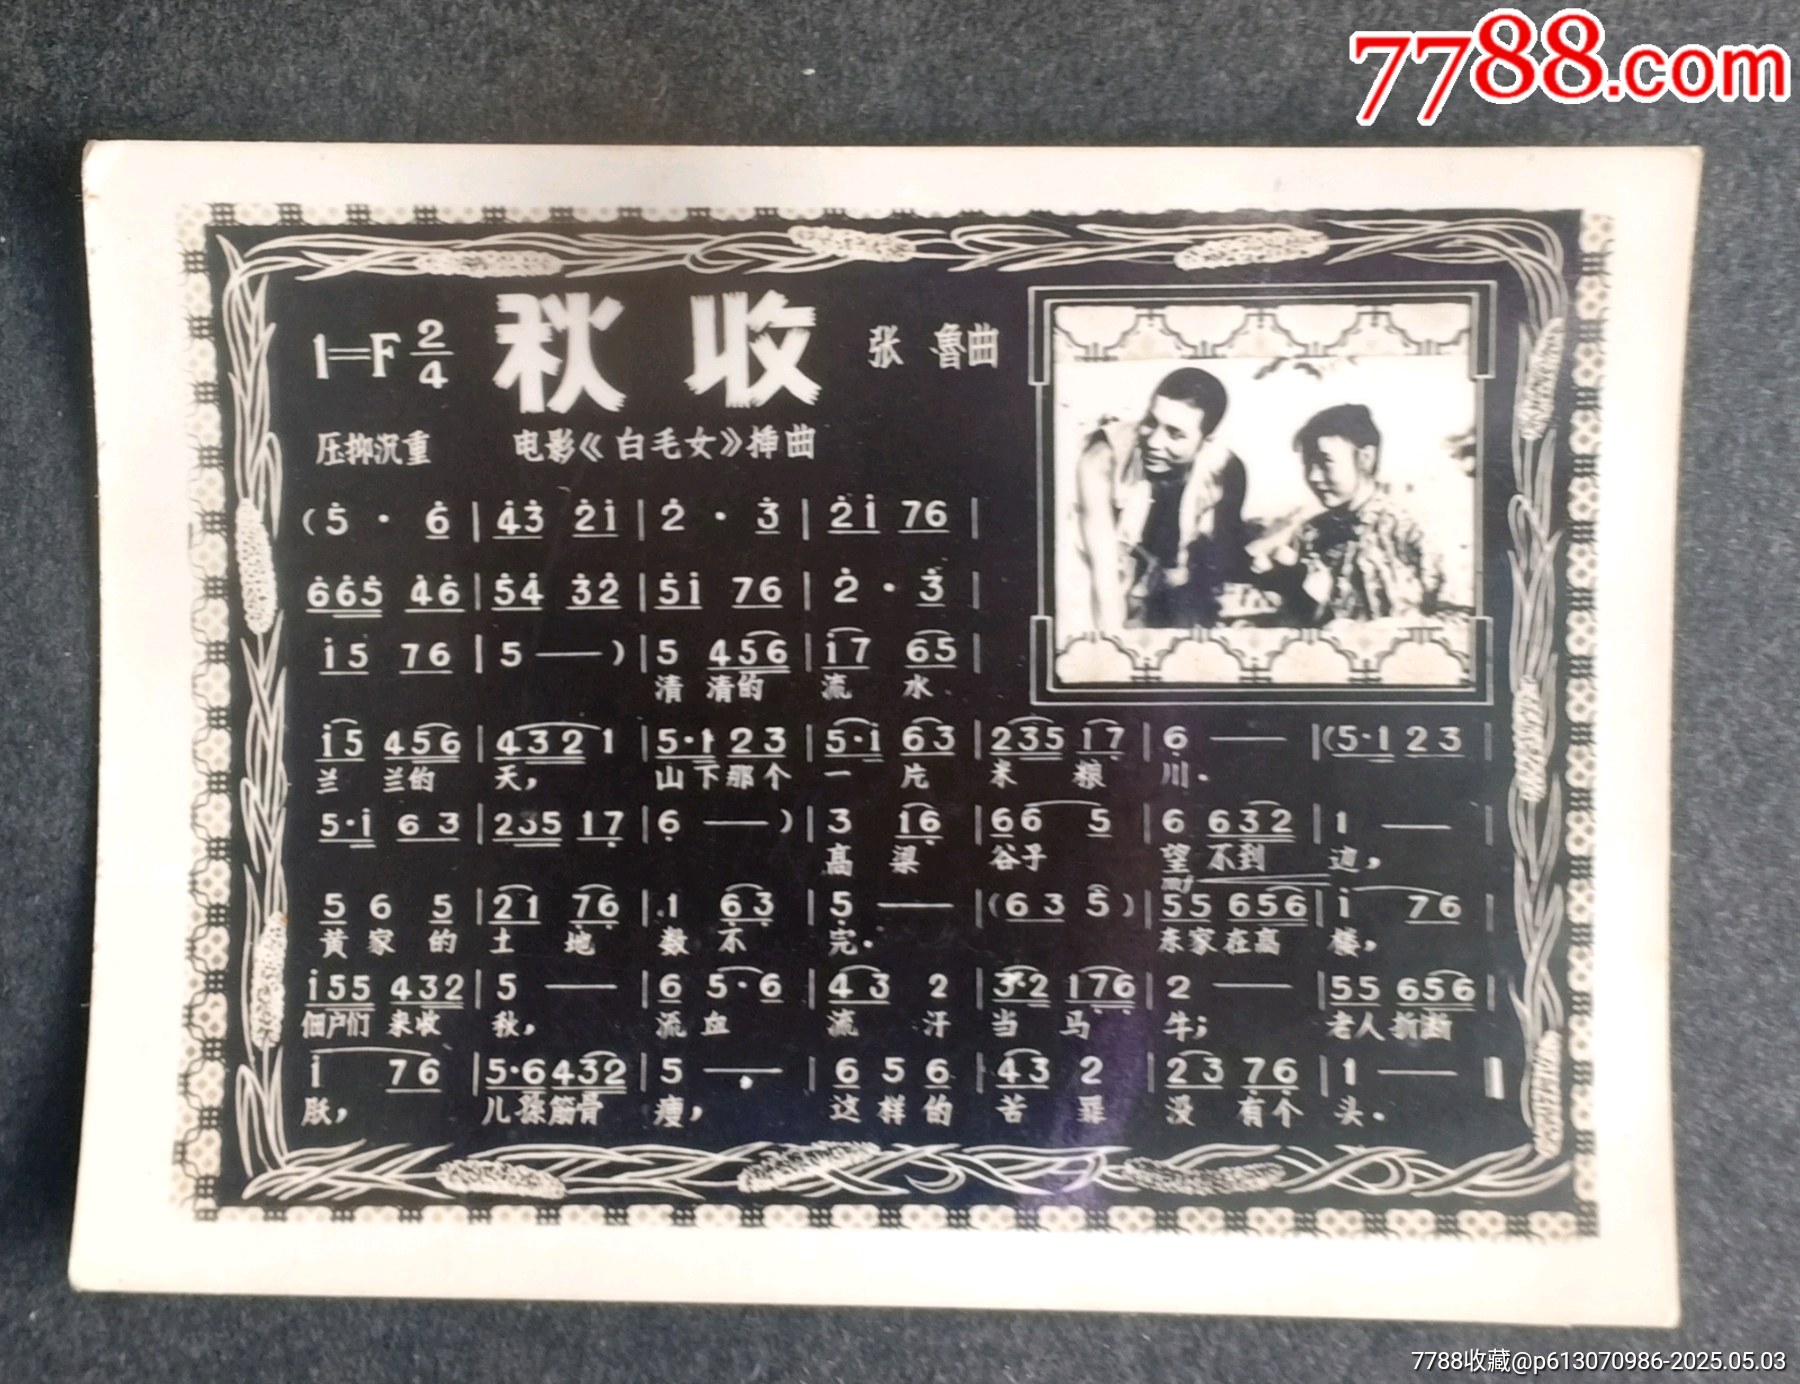 7788.com
秋收
1=F 2/4
张魯曲
压抑沉重
电影《白毛女》插曲
(5̇ · 6̇ | 4̇3̇ 2̇1̇ | 2̇ · 3̇ | 2̇1̇ 76 |
6̇6̇5̇ 4̇6̇ | 5̇4̇ 3̇2̇ | 5̇1̇ 76 | 2̇ · 3̇ |
1̇5 76 | 5 — ) | 5 456 | 1̇7 65 |
清 清的 流 水
1̇5 456 | 4321 | 5·1 23 | 5·1̇ 63 | 235 17̣ | 6̣ — | (5·1 23 |
兰 兰的 天, 山下那个 一 片 米 粮 川.
5·1̇ 63 | 235 17̣ | 6̣ — ) | 3 16̣ | 66 5 | 6 632 | 1 — |
高 梁 谷子 望 不到 边,
mf
5 6 5 | 21 7̣6̣ | 1 6̣3̣ | 5̣ — | (6 3 5) | 55 656 | 1̇ 76 |
黄 家 的 土 地 数 不 完. 东家在高 楼,
1̇55 432 | 5 — | 6 5·6 | 43 2 | 3·2 17̣6̣ | 2 — | 55 656 |
佃户们 来收 秋, 流 血 流 汗 当 马 牛; 老人折断
1̇ 76 | 5·6432 | 5 — | 6 5 6 | 43 2 | 23 7̣6̣ | 1 — |
腰, 儿孫筋骨 瘦, 这 样 的 苦 罪 没 有个 头.
7788收藏@p613070986-2025.05.03